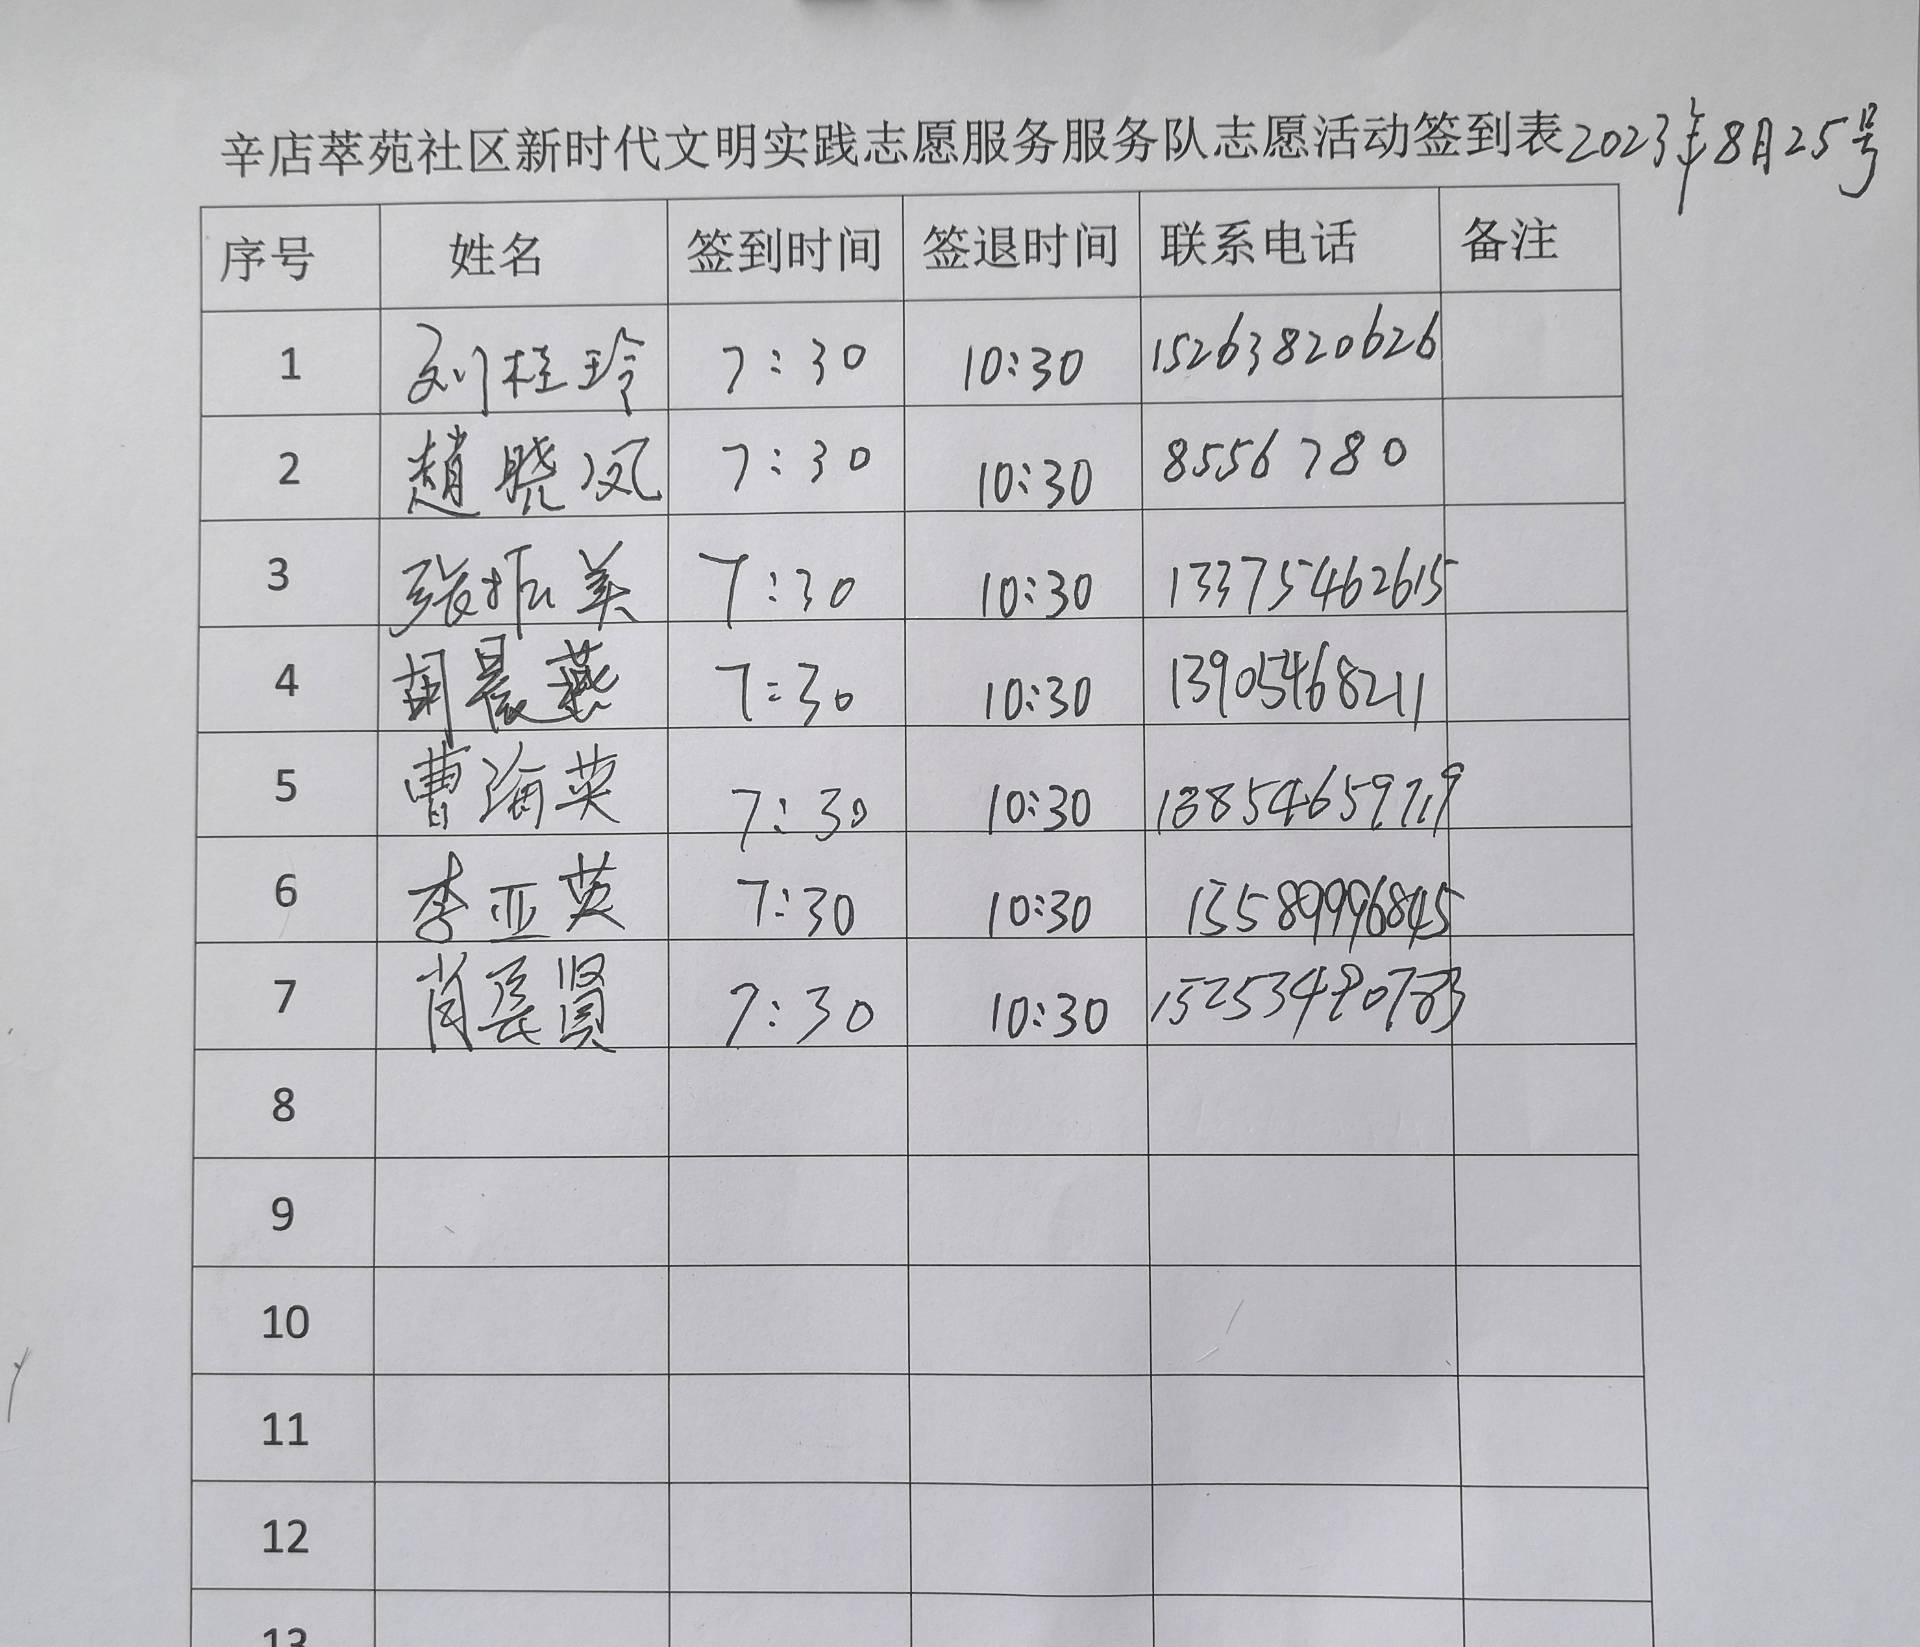 辛店萃苑社区新时代文明实践志愿服务服务队志愿活动签到表 2023年8月25号
序号 姓名 签到时间 签退时间 联系电话 备注
1 刘桂玲 7:30 10:30 15263820626
2 趙晓凤 7:30 10:30 8556780
3 张振美 7:30 10:30 13375462615
4 胡晨燕 7:30 10:30 13905468211
5 曹海英 7:30 10:30 13854659719
6 李亚英 7:30 10:30 13589996845
7 肖长贤 7:30 10:30
8
9
10
11
12
13